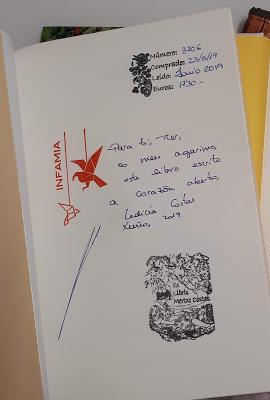 Número: 3706
Comprado: 23/5/19
Leído: Junio 2019
Euros: 17'30.-
INFAMIA
Para ti, Mer,
co meu agarimo,
este libro escrito
a corazón aberto,
Ledicia Costas
Xuño, 2019
Ex
Libris
Mertxe Costas